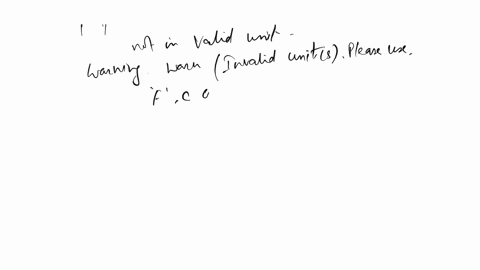 ' '
not in valid unit -
Warning. warn (Invalid unit(s). Please use.
'F', C